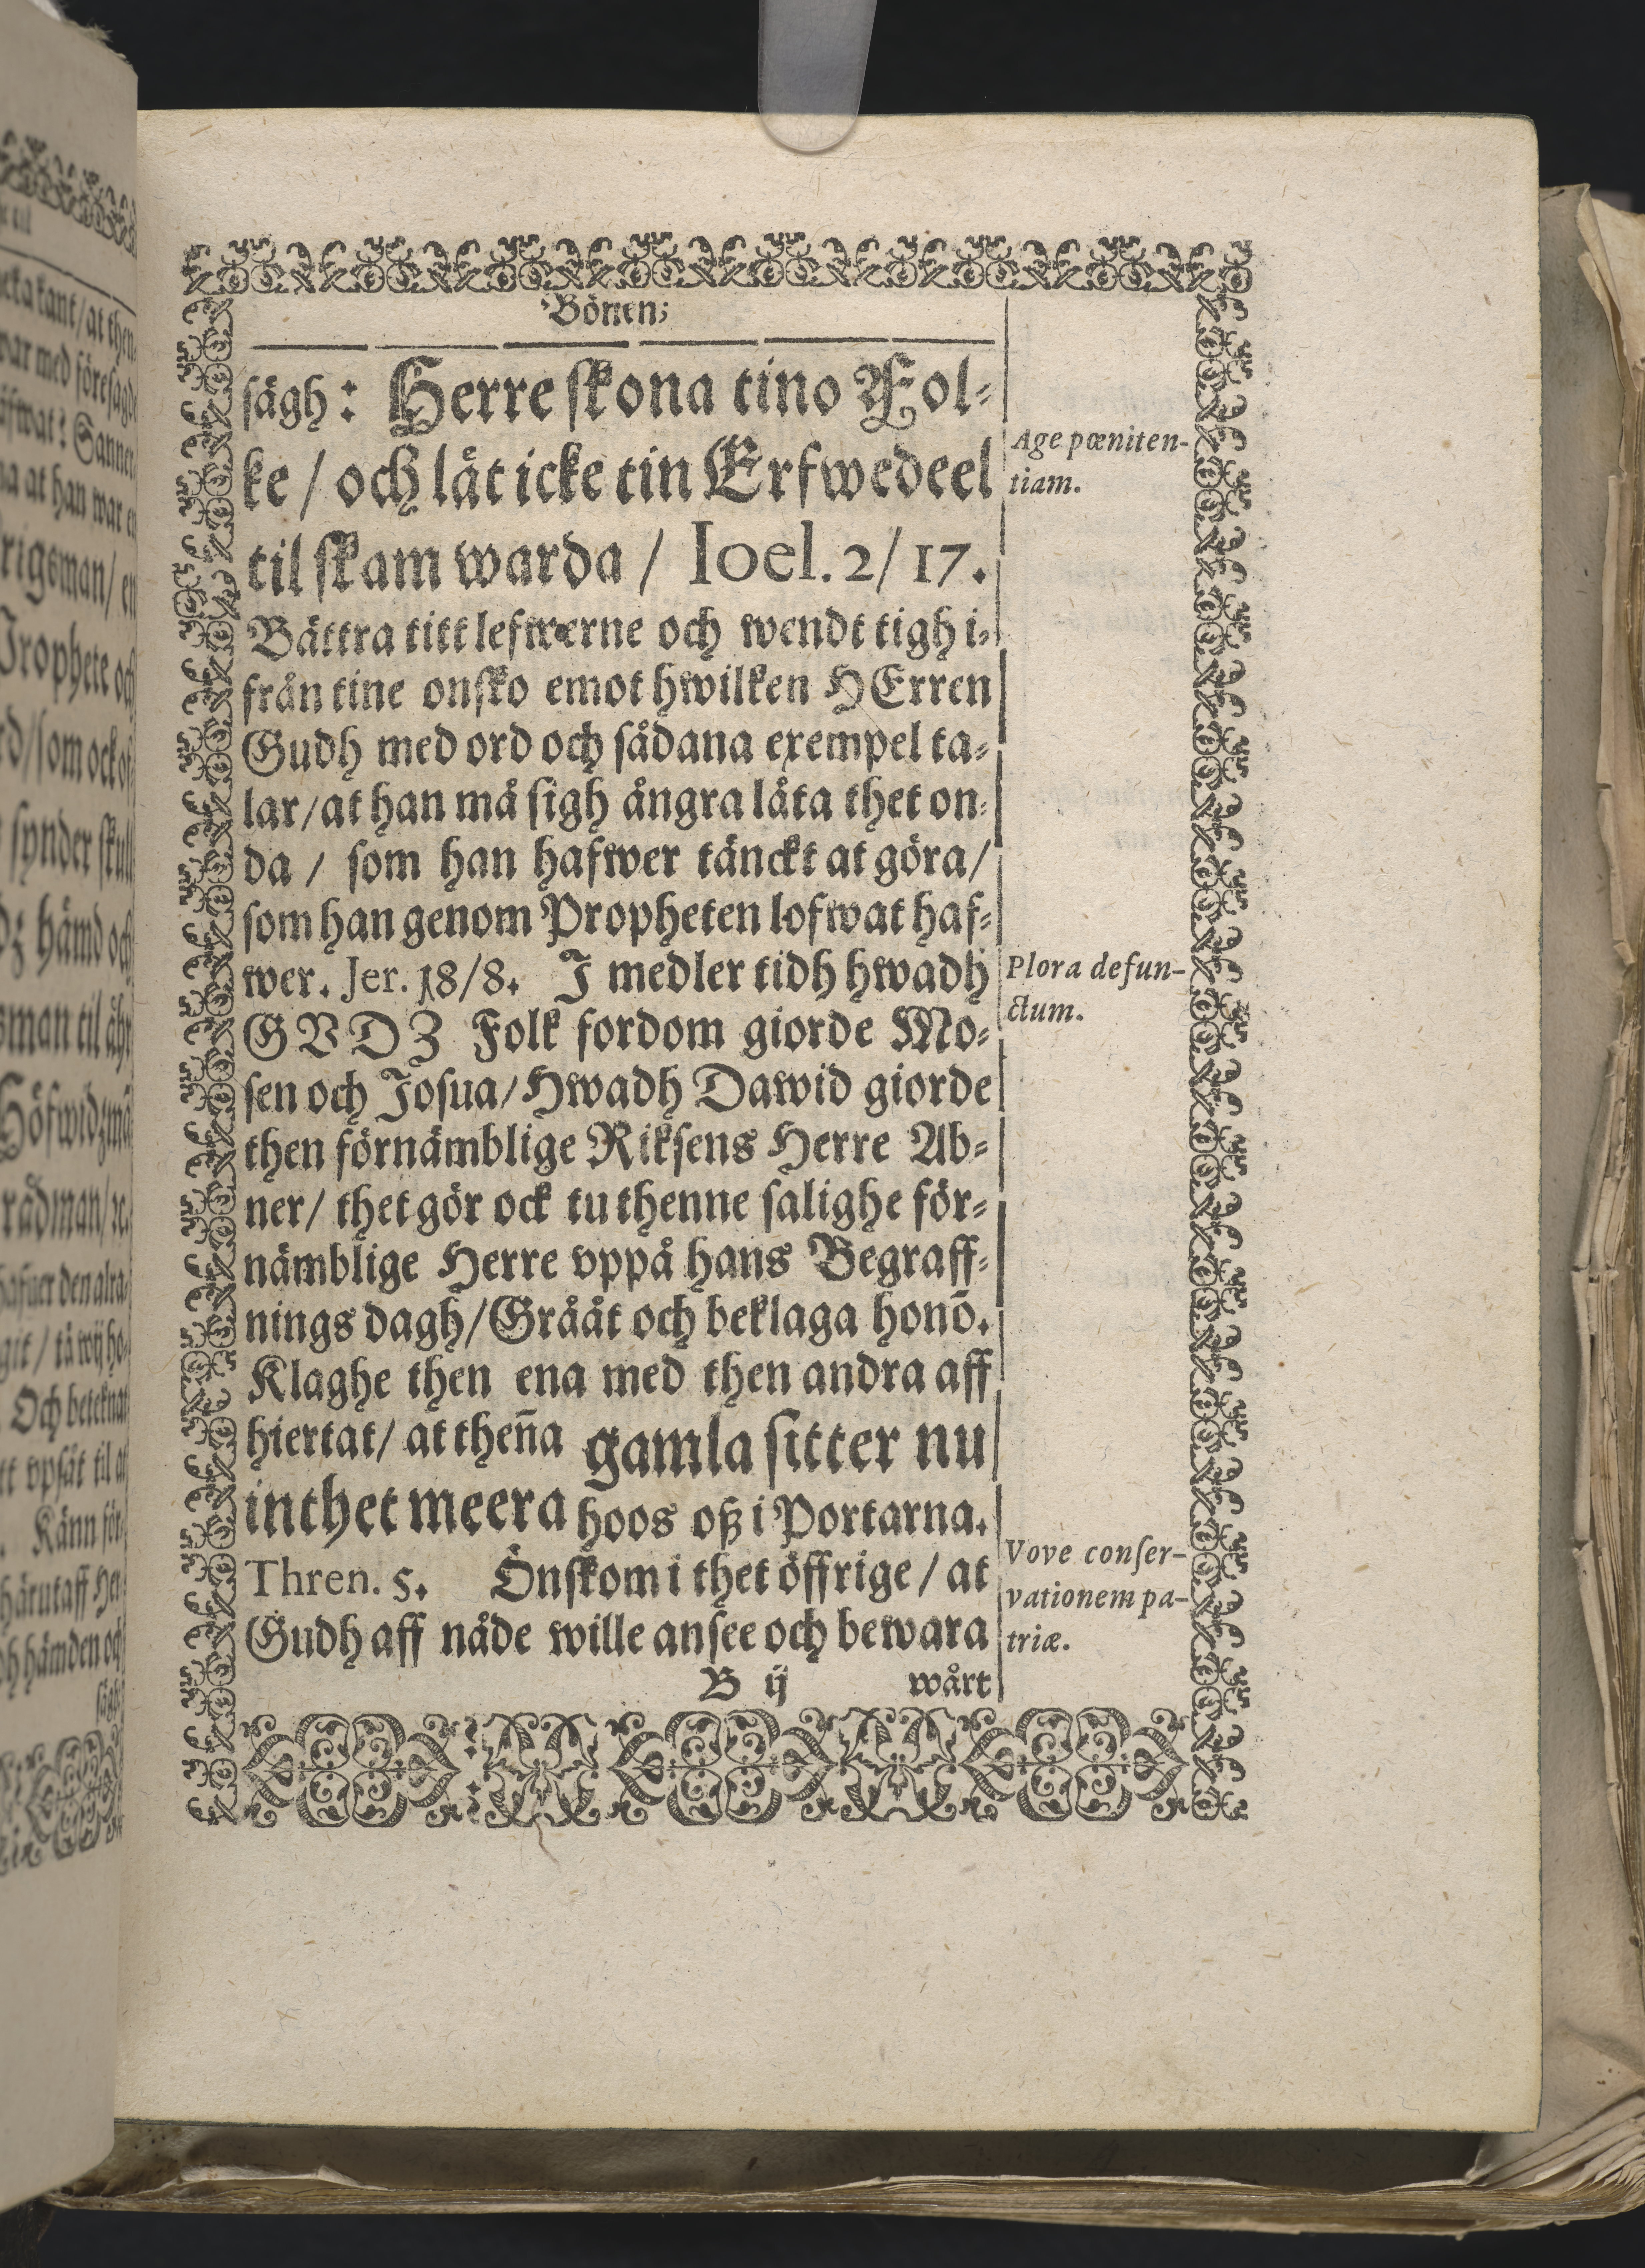 Bönen;
sägh: Herre skona tino Fol-
ke / och låt icke tin Erfwedeel
til skam warda / Ioel. 2/17.
Bättra titt lefwerne och wendt tigh i-
från tine onsko emot hwilken HErren
Gudh med ord och sådana exempel ta-
lar/at han må sigh ångra låta thet on-
da / som han hafwer tänckt at göra/
som han genom Propheten lofwat haf-
wer. Jer. 18/8. I medler tidh hwadh
GVDZ Folk fordom giorde Mo-
sen och Josua/Hwadh Dawid giorde
then förnämblige Riksens Herre Ab-
ner/ thet gör ock tu thenne salighe för-
nämblige Herre vppå hans Begraff-
nings dagh/Grååt och beklaga honō.
Klaghe then ena med then andra aff
hiertat/ at theña gamla sitter nu
inthet meera hoos oß i Portarna.
Thren. 5. Önskom i thet öffrige / at
Gudh aff nåde wille ansee och bewara
B ij wårt
Age pœniten-
tiam.
Plora defun-
ctum.
Vove conser-
vationem pa-
triæ.